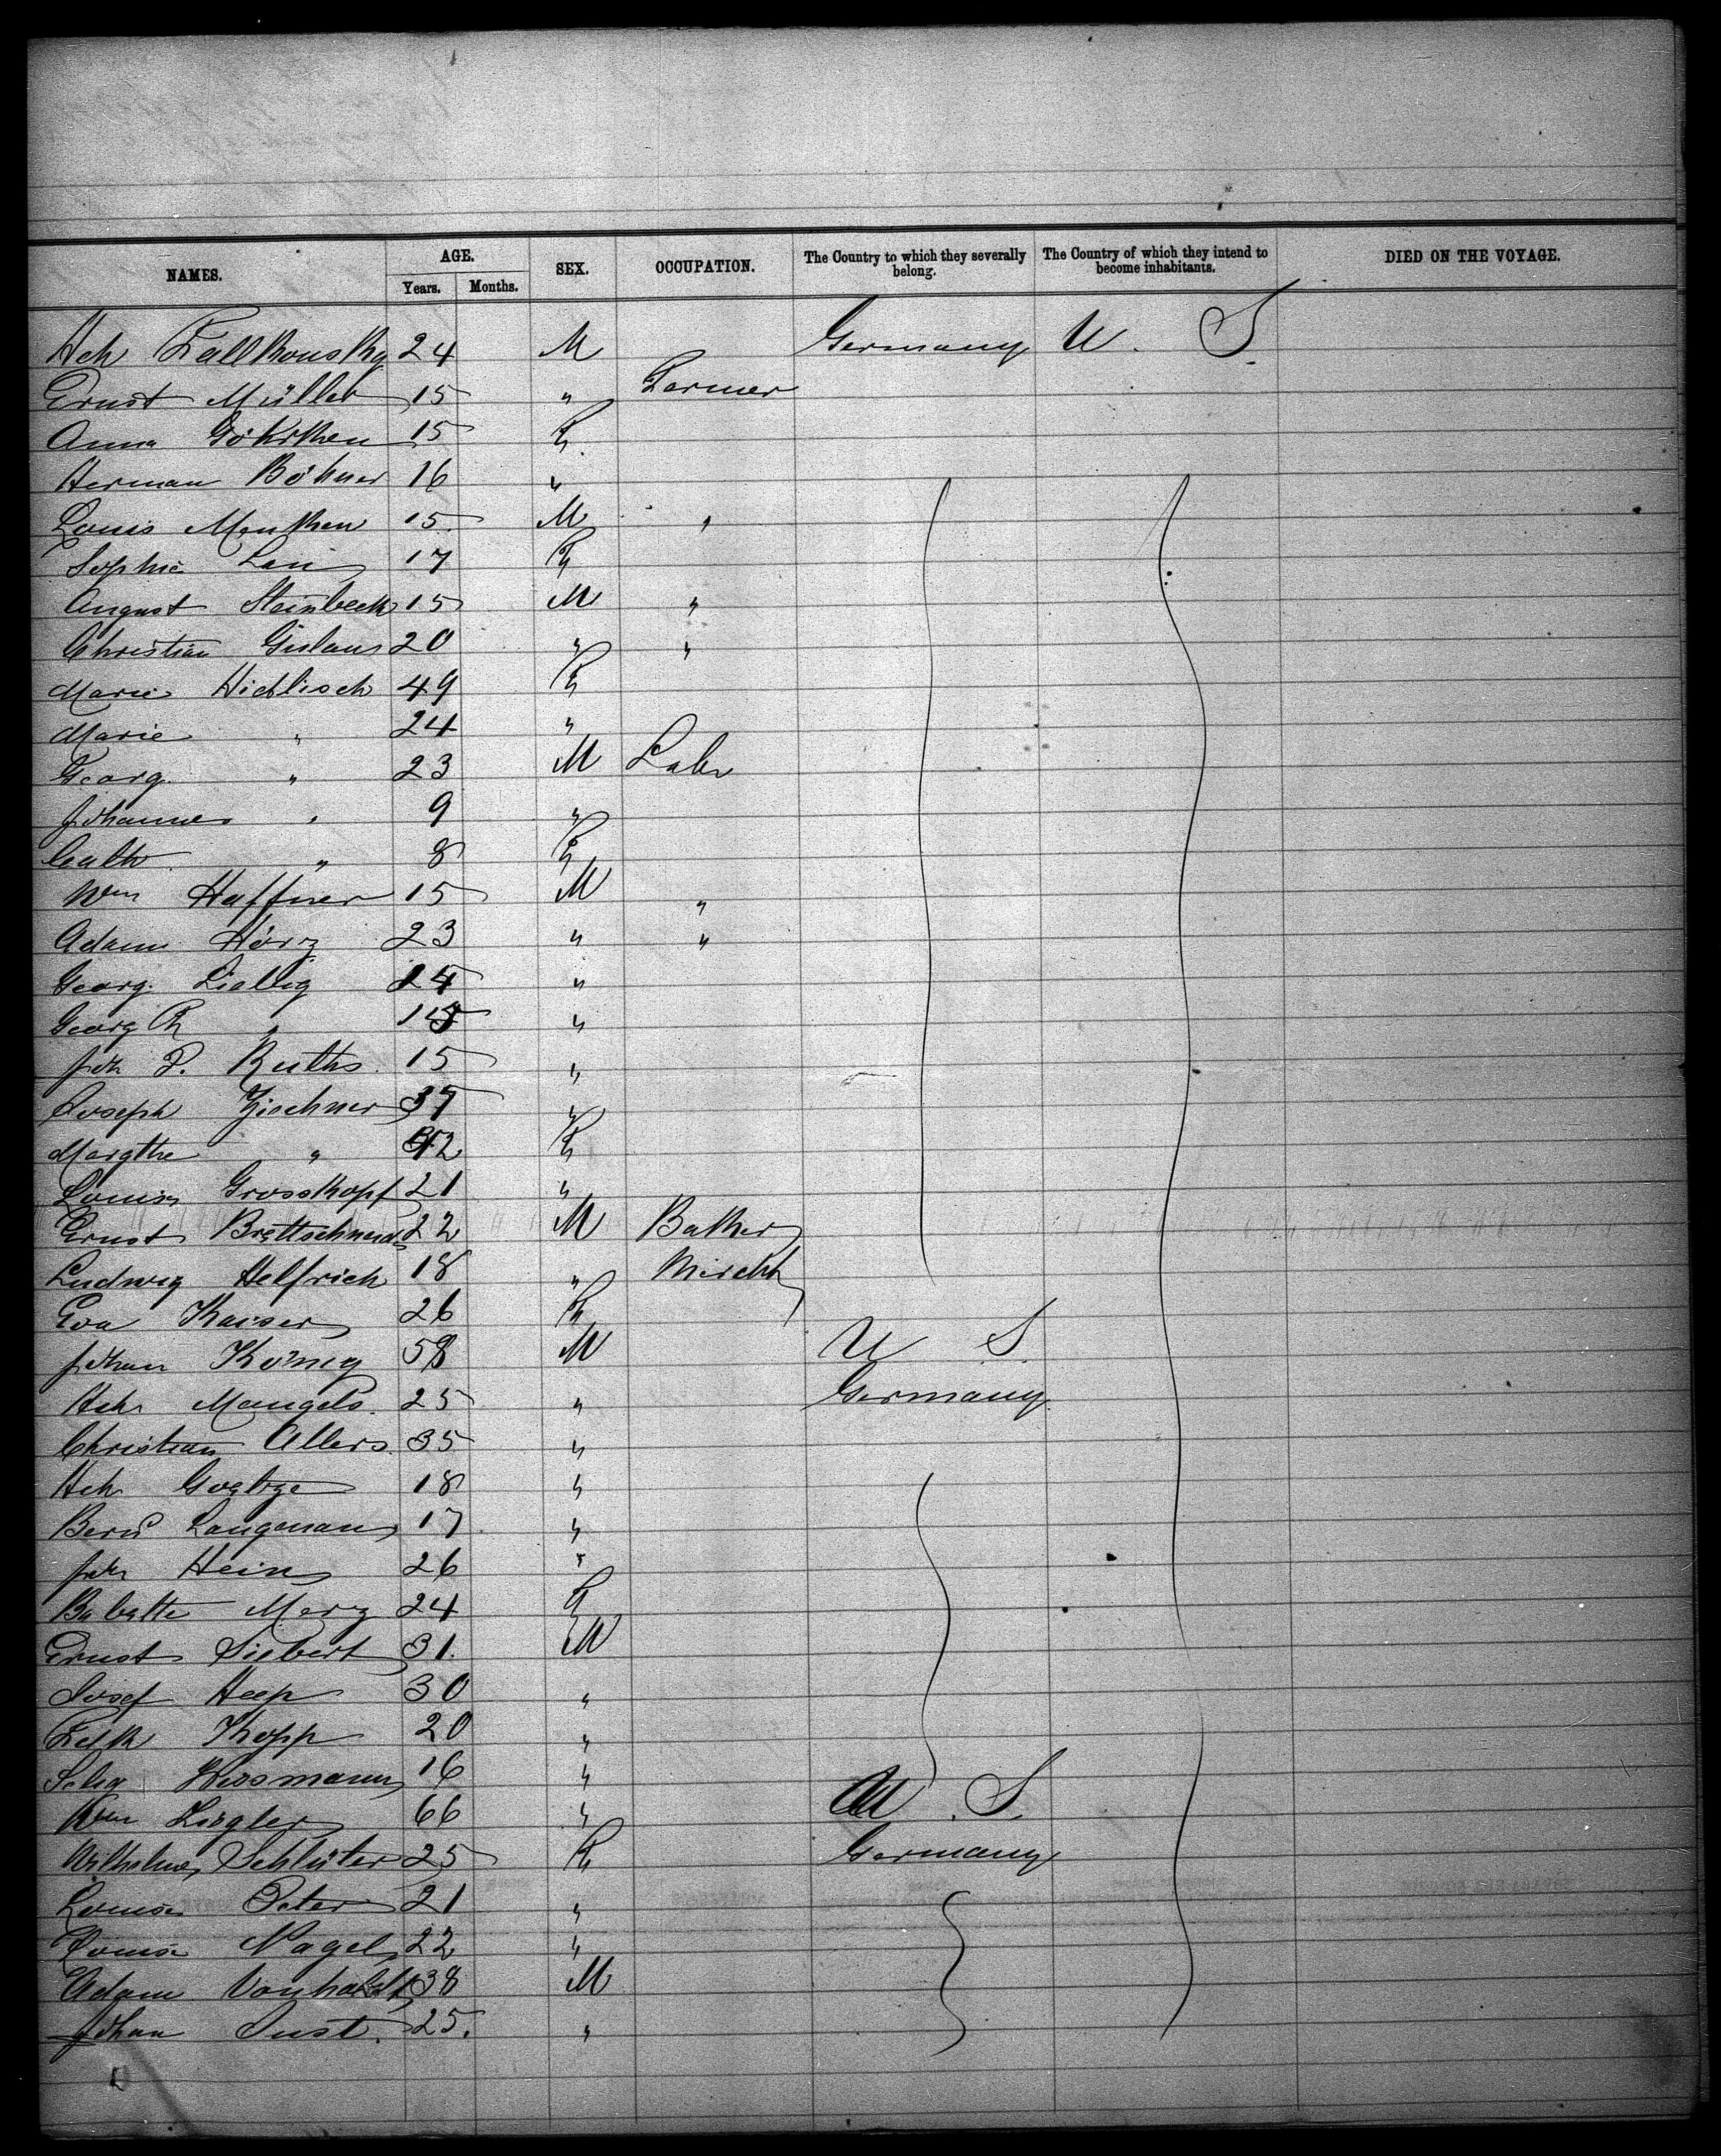 NAMES. AGE. Years. Months. SEX. OCCUPATION. The Country to which they severally belong. The Country of which they intend to become inhabitants. DIED ON THE VOYAGE.
Hch 24 M Germany U. S.
Ernst Müller 15 " Farmer
Anna 15 F
Herman Böhner 16 "
Louis Menken 15 M "
Sophie 17 F
August Steinbeck 15 M "
Christian 20 " "
Marie 49 F
Marie " 24 "
Georg " 23 M Labr
Johannes " 9 "
Cath " 8 F
Wm Haffner 15 M "
Adam Hörz 23 " "
Georg. Liebig "
Georg Ph " "
Joh P. Ruths 15 "
Joseph "
Margthe " F
Louise Grosskopf 21 "
Ernst Brettschneider 22 M Baker
Ludwig Helfrich 18 " Mercht
Eva Kaiser 26 F
Johan König 58 M U S
Hch Mangels 25 " Germany
Christian Allers 35 "
Hch 18 "
Bernd Langeman 17 "
Joh Hein 26 "
Babette Merz 24 F
Ernst Siebert 31. M
Josef Heep 30 "
Kopp 20 "
Selig 16 "
Wm Ziegler 66 " U. S.
Wilhelme Schlüter 25 F Germany
Louise Peter 21 "
Louise Nagel 22 "
Adam 38 M
Johan Just. 25. "